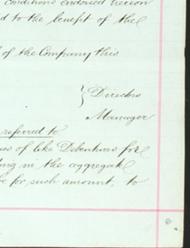 conditions endorsed hereon
d to the benefit of the
of the Company this
Directors
Manager
referred to
us of like Debentures for
ing in the aggregate
for such amount, to